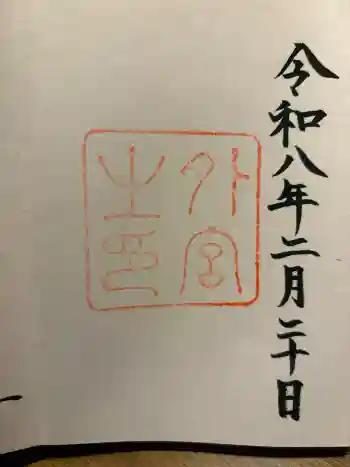 令和八年二月二十日
外宮
之印